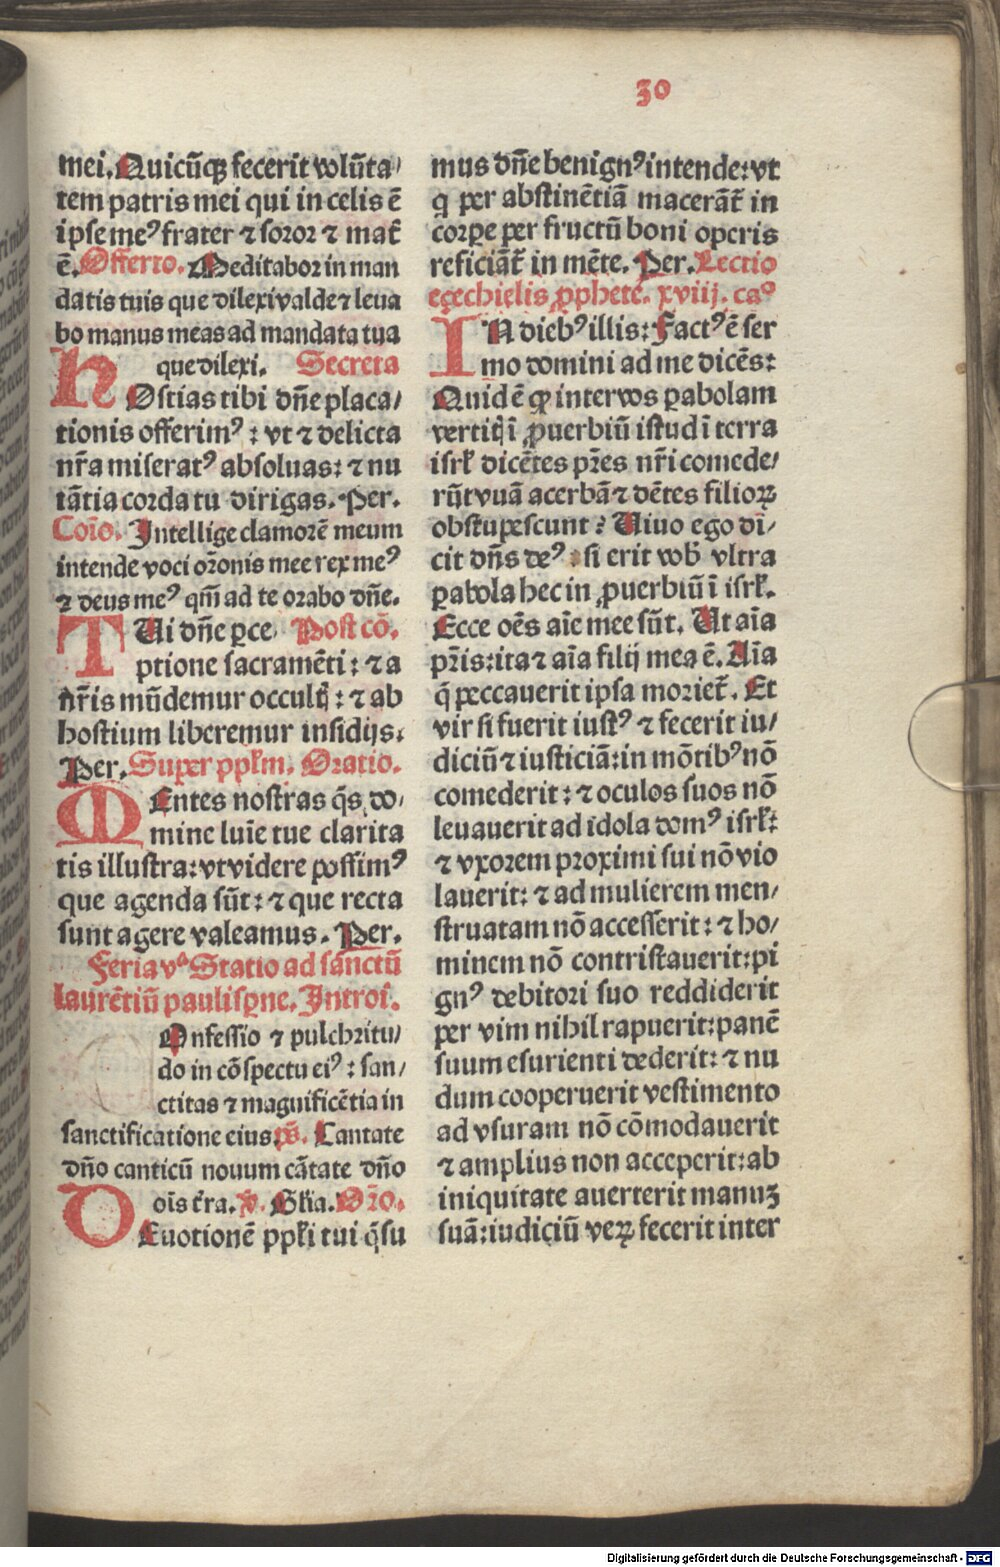 30
mei. Quicūqꝫ fecerit volūta⸗
tem patris mei qui in celis ē
ipse meꝰ frater ⁊ soror ⁊ mat̄
ē. Offerto. Meditabor in man
datis tuis que dilexi valde ⁊ leua
bo manus meas ad mandata tua
que dilexi. Secreta
HOstias tibi dn̄e placa⸗
tionis offerimꝰ : vt ⁊ delicta
nr̄a miseratꝰ absoluas: ⁊ nu
tātia corda tu dirigas. Per.
Cōio. Intellige clamorē meum
intende voci or̄onis mee rex meꝰ
⁊ deus meꝰ qm̄ ad te orabo dn̄e.
TUi dn̄e ꝑce Post cō.
ptione sacramēti : ⁊ a
nr̄is mūdemur occult : ⁊ ab
hostium liberemur insidijs.
Per. Super ppl̄m. Oratio.
MEntes nostras q̄s do⸗
mine luīe tue clarita
tis illustra: vt videre possimꝰ
que agenda sūt: ⁊ que recta
sunt agere valeamus. Per.
Feria vᵃ Statio ad sanctū
laurētiū paulisꝑne. Introi̅.
Onfessio ⁊ pulchritu⸗
do in cōspectu eiꝰ : san⸗
ctitas ⁊ magnificētia in
sanctificatione eius. ps̄. Cantate
dn̄o canticū nouum cātate dn̄o
oīs t̄ra. ℣. Gl̄ia. Or̄o.
DEuotionē ppl̄i tui q̄su
mus dn̄e benignꝰ intende: vt
q ꝑer abstinētiā macerāt̄ in
corꝑe per fructū boni operis
reficiāt̄ in mēte. Per. Lectio
ezechielis ꝓphete. xviij. caᵒ
IN diebꝰ illis: Factꝰ ē ser
mo domini ad me dicēs:
Quid ē ꝙ inter vos ꝑabolam
vertitꝭ ī ꝓuerbiū istud ī terra
isrl̄ dicētes pr̄es nr̄i comede⸗
rūt vuā acerbā ⁊ dētes filioꝝ
obstupescunt? Uiuo ego dī⸗
cit dn̄s deꝰ : si erit vob̄ vltra
ꝑabola hec in ꝓuerbiū ī isrl̄.
Ecce oēs aīe mee sūt. Ut aīa
pr̄is: ita ⁊ aīa filij mea ē. Aīa
q̄ peccauerit ipsa moriet̄. Et
vir si fuerit iustꝰ ⁊ fecerit iu⸗
diciū ⁊ iusticiā: in mōtibꝰ nō
comederit : ⁊ oculos suos nō
leuauerit ad idola domꝰ isrl̄:
⁊ vxorem proximi sui nō vio
lauerit: ⁊ ad mulierem men⸗
struatam nō accesserit : ⁊ ho⸗
minem nō contristauerit: pi
gnꝰ debitori suo reddiderit
per vim nihil rapuerit: panē
suum esurienti dederit: ⁊ nu
dum cooperuerit vestimento
ad vsuram nō cōmodauerit
⁊ amplius non acceperit: ab
iniquitate auerterit manuꝫ
suā: iudiciū veꝝ fecerit inter
Digitalisierung gefördert durch die Deutsche Forschungsgemeinschaft - DFG